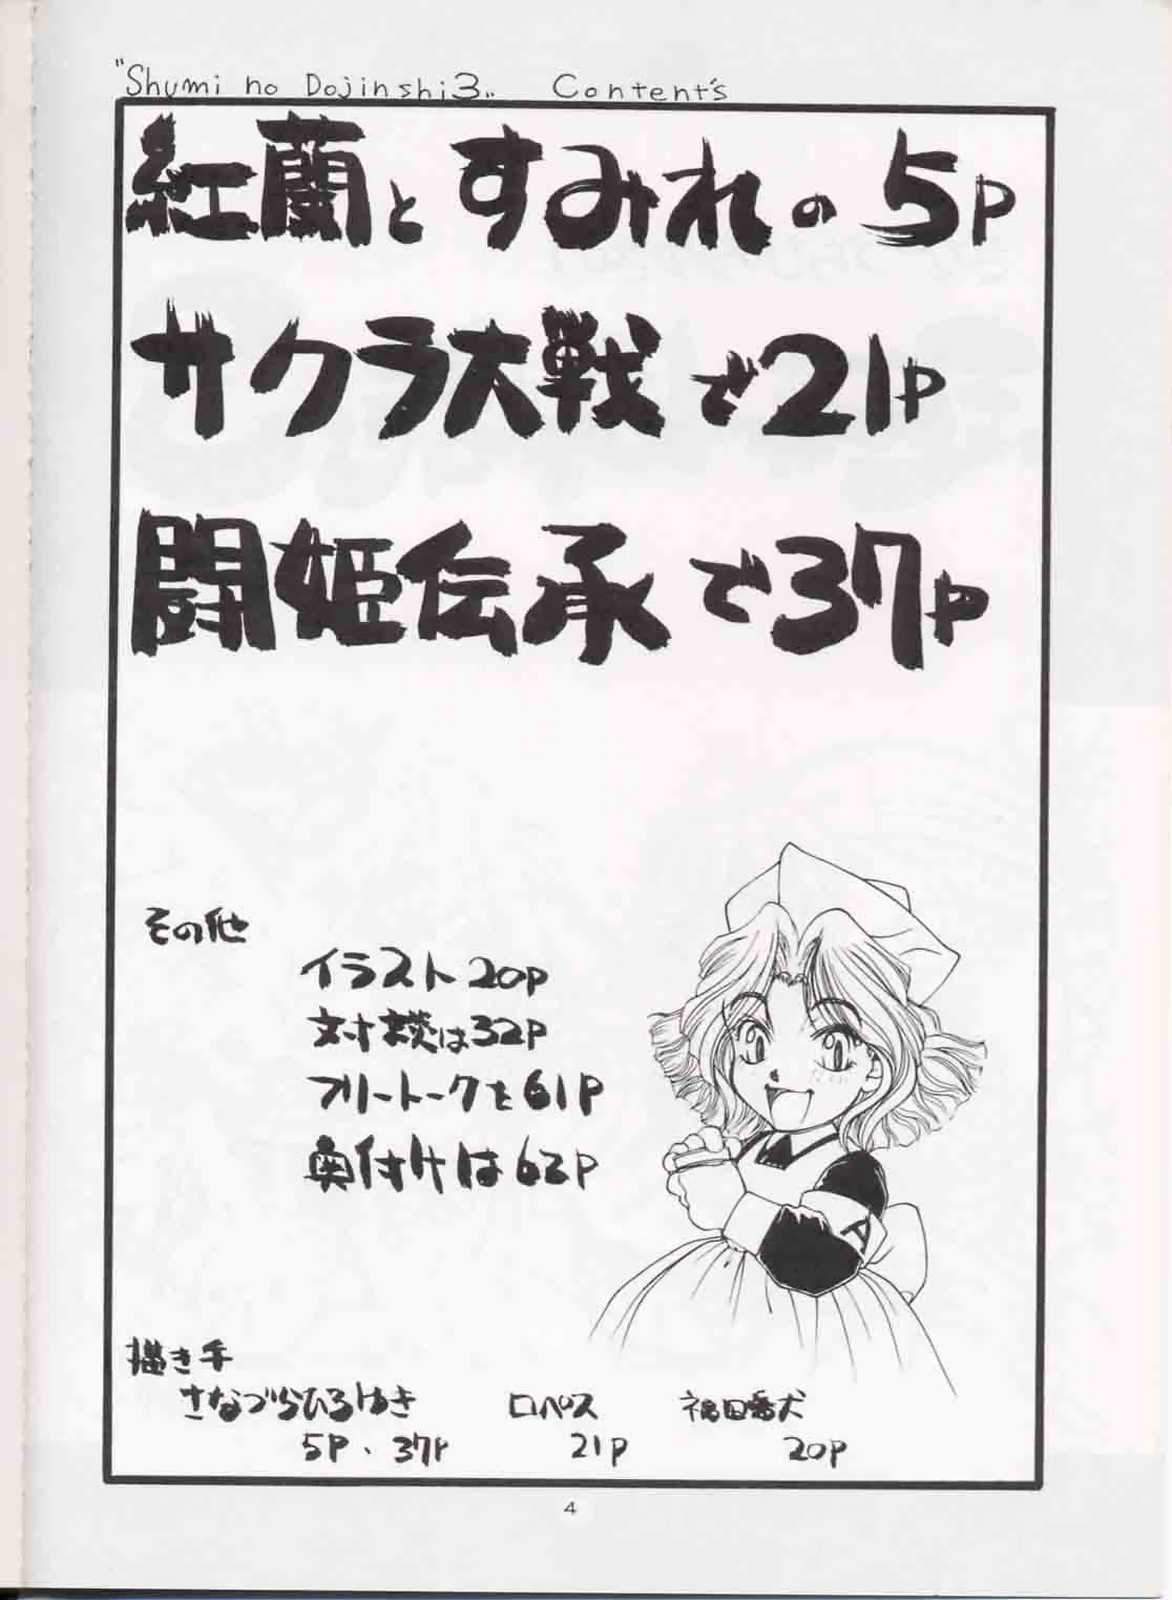 "Shumi no Dojinshi3" Content's
紅蘭とすみれの5P
サクラ大戦で21P
闘姫伝承で37P
その他
イラスト20P
対談は32P
フリートークを61P
奥付けは62P
描き手
さなづらひろゆき ロペス 福田番犬
5P・37P 21P 20P
A
4